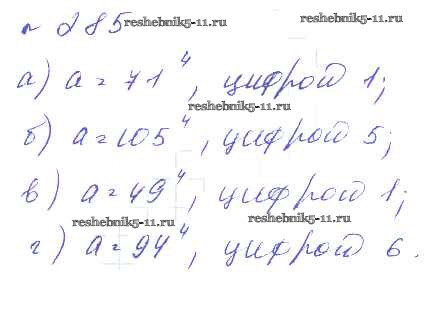 № 285 reshebnik5-11.ru reshebnik5-11.ru
а) a = 71⁴, цифрой 1;
reshebnik5-11.ru
б) a = 105⁴, цифрой 5;
в) a = 49⁴, цифрой 1;
reshebnik5-11.ru reshebnik5-11.ru
г) a = 94⁴, цифрой 6.